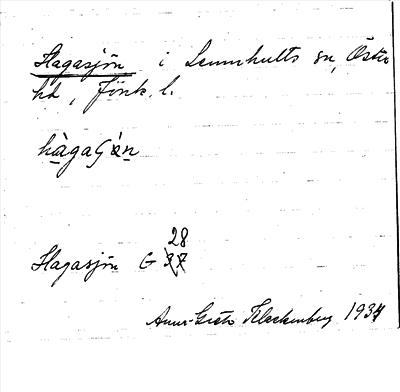 Hagasjön i Lemnhults sn, Östra
hd, Jönk. l.
hàgaɕǿn
28
Hagasjön G 37
Anna-Greta Kleckenberg 1934